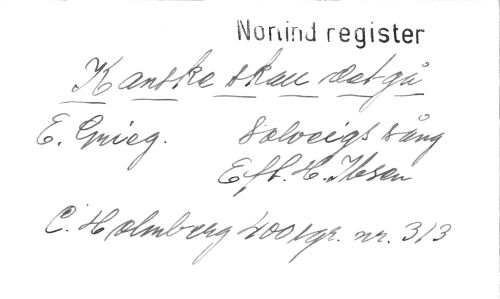 Nordind register
Kanske skall det gå
E. Grieg. Solveigs sång
Eft. H. Ibsen
C. Holmberg 400 sgr. nr. 313